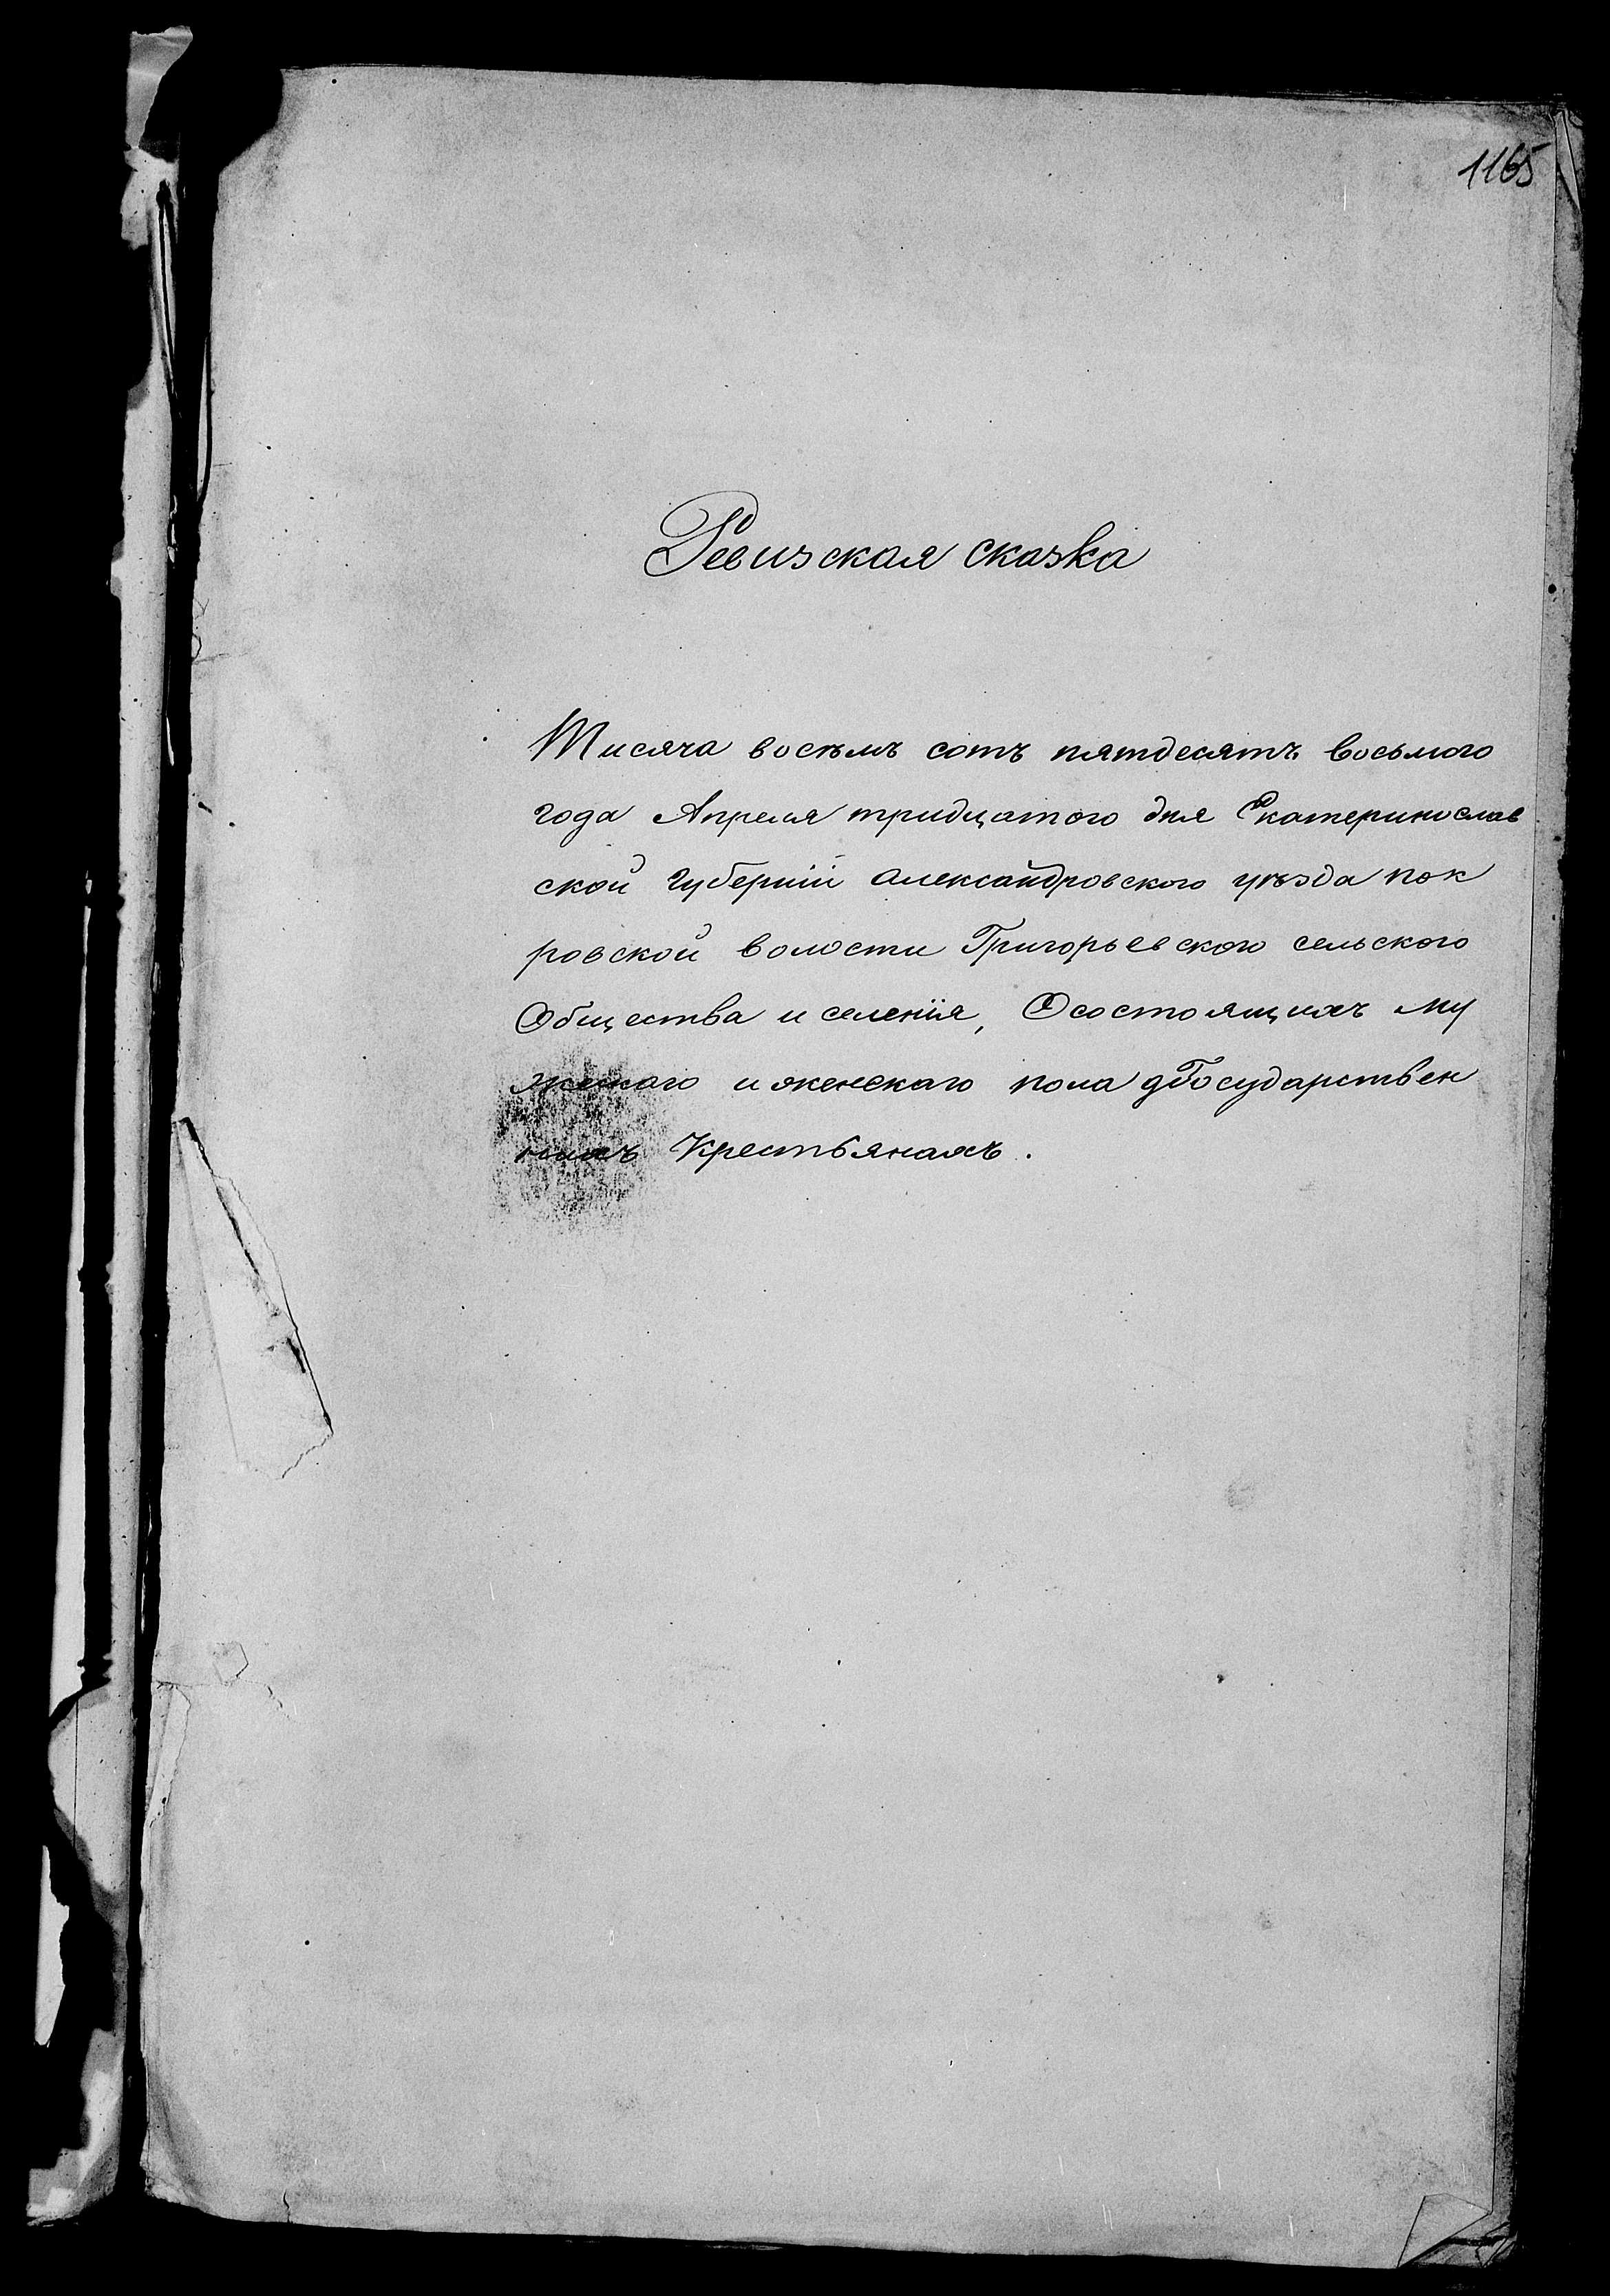 1165
Ревизская сказка
Тисяча восемъ сотъ пятдесятъ восьмого
года Апреля тридцатого дня Екатеринослав
ской губерніи Александровского уѣзда пок
ровской волости Григорьевского сельского
Общества и селенія, О состоящихъ му
жескаго и женскаго пола Государствен
нихъ Крестьянахъ.